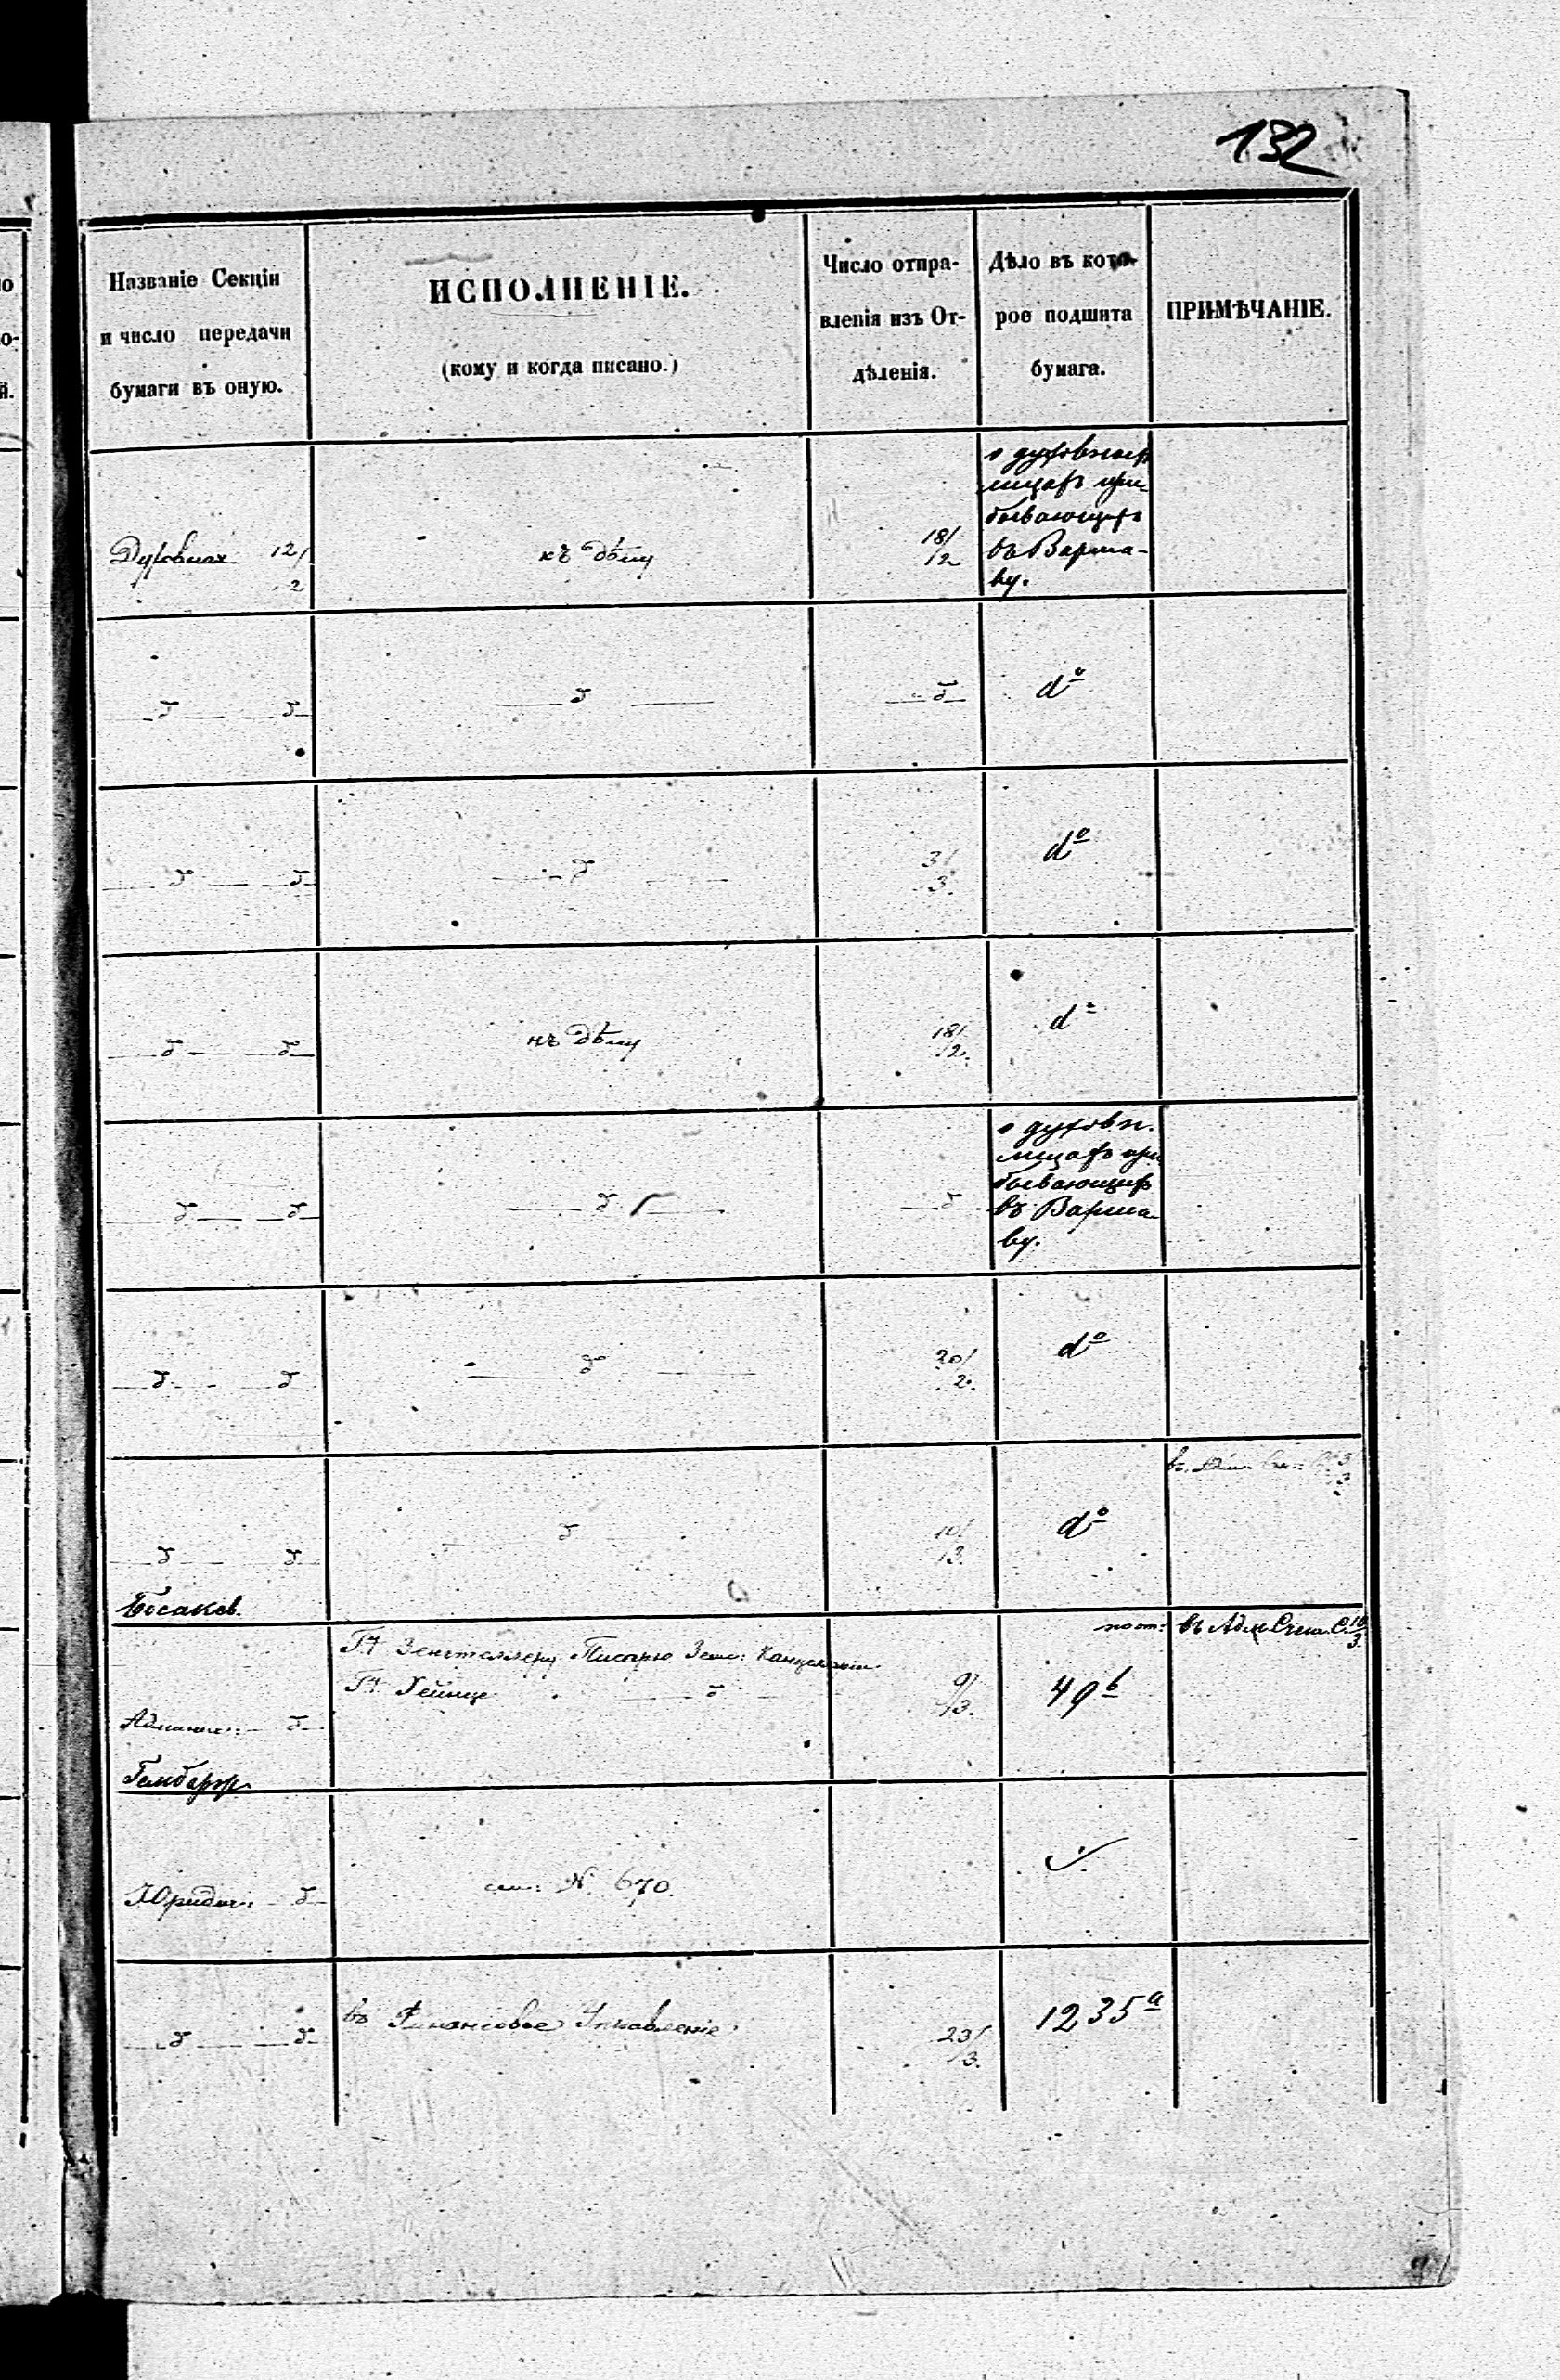 132
Названіе Секціи
и число передачи
бумаги въ оную.
ИСПОЛНЕНІЕ.
(кому и когда писано.)
Число отпра-
вленія изъ От-
дѣленія.
Дѣло въ кото-
рое подшита
бумага.
ПРИМѢЧАНІЕ.
Духовная 12/2
къ дѣлу
18/2
о духовныхъ
лицахъ при-
бывающихъ
въ Варша-
ву.
d⁰
3/3.
d⁰
къ дѣлу
18/2.
d⁰
о духовн.
лицахъ при
бывающихъ
въ Варша-
ву.
20/2.
d⁰
10/3.
d⁰
3/3
Босаков.
Писарю Зем: Канцеляріи
9/3.
49б
пот: въ Адм. 10/3
Юридич:
см: № 670.
въ Финансовое Управленіе
23/3.
1235а